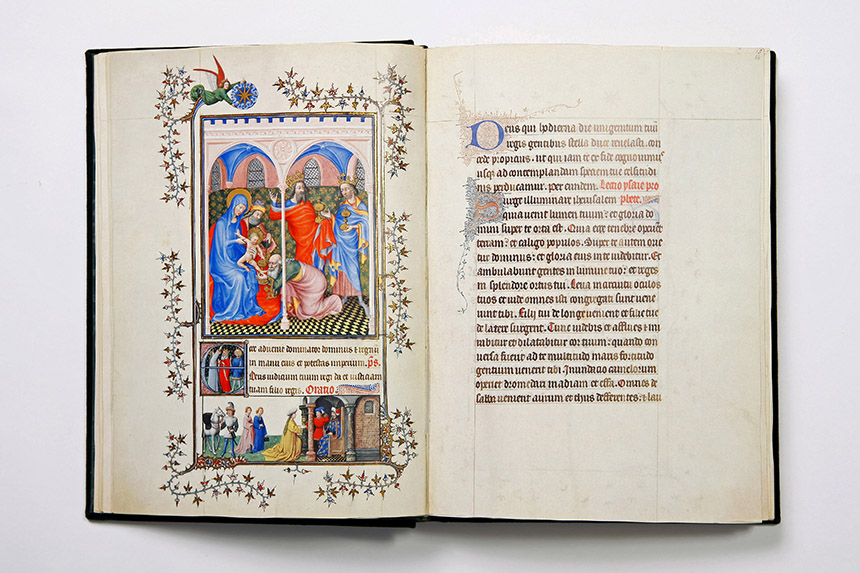 Ecce aduenit dominator dominus & regnū
in manu eius et potestas imperium. p̄s.
Deus iudicium tuum regi da et iusticiam
tuam filio regis. Oratio
Deus qui hodierna die unigenitum tuū
regis gentibus stella duce reuelasti. con
cede propicius. ut qui iam te ex fide cognouimus
usq; ad contemplandam speciem tue celsitudi
nis perducamur. per eundem. Lectio ysaie pro
Surge illuminare iherusalem phete.
quia uenit lumen tuum: et gloria do
mini super te orta est. Quia ecce tenebre operient
terram: et caligo populos. Super te autem orie
tur dominus: et gloria eius in te uidebitur. Et
ambulabunt gentes in lumine tuo: et reges
in splendore ortus tui. Leua in circuitu oculos
tuos et uide omnes isti congregati sunt uene
runt tibi. Filij tui de longe uenient et filie tue
de latere surgent. Tunc uidebis et afflues & mi
rabitur et dilatabitur cor tuum: quando con
uersa fuerit ad te multitudo maris fortitudo
gentium uenerit tibi. Inundacio camelorum
operiet te dromedarij madian et effa. Omnes de
saba uenient aurum et thus deferentes: & lau